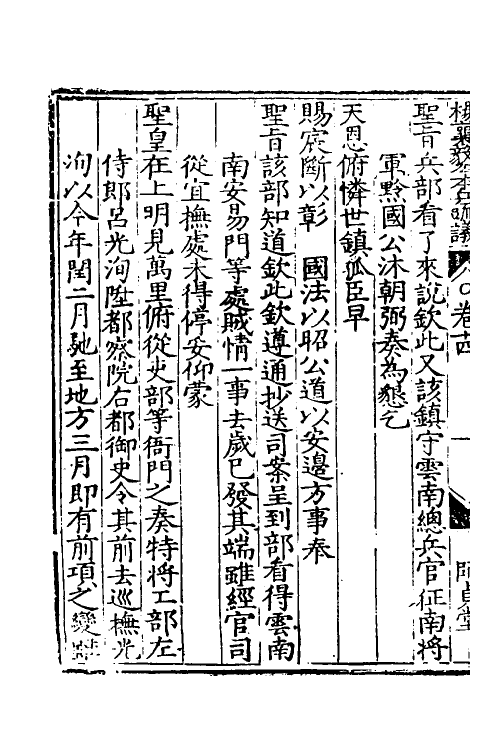 楊襄毅公本兵疏議 卷十四 一 師貞堂
聖旨兵部看了來說欽此又該鎮守雲南總兵官征南將
軍黔國公沐朝弼奏為懇乞
天恩俯憐世鎮孤臣早
賜宸斷以彰 國法以昭公道以安邊方事奉
聖旨該部知道欽此欽遵通抄送司案呈到部看得雲南
南安易門等處賊情一事去歲已發其端雖經官司
從宜撫處未得停妥仰蒙
聖皇在上明見萬里俯從吏部等衙門之奏特將工部左
侍郎呂光洵陞都察院右都御史令其前去巡撫光
洵以今年閏二月馳至地方三月即有前項之變雖